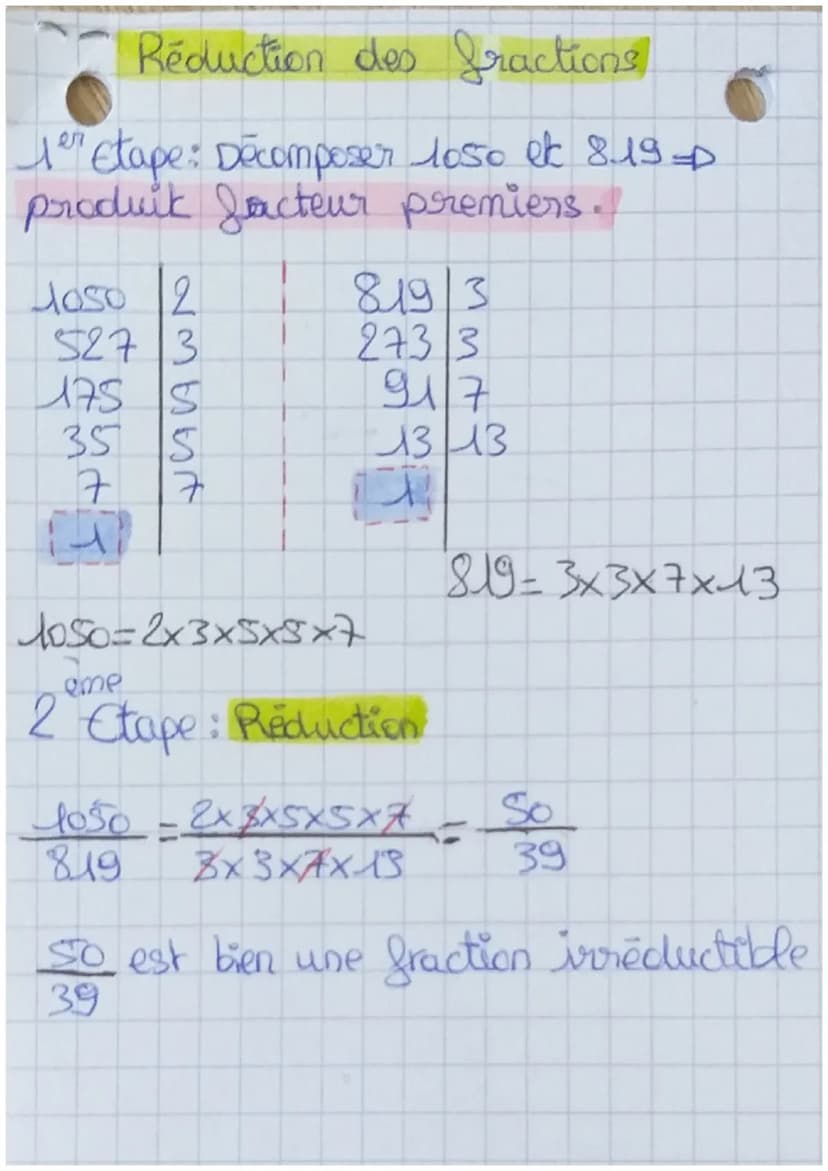 Réduction des fractions
1er Etape: Décomposer 1050 et 819 ⇒
produit facteur premiers.
1050 | 2
527 | 3
175 | 5
35 | 5
7 | 7
1
819 | 3
273 | 3
91 | 7
13 | 13
1
819 = 3x3x7x13
1050 = 2x3x5x5x7
2ème Etape: Réduction
1050/819 = 2x3x5x5x7/3x3x7x13 = 50/39
50/39 est bien une fraction irréductible